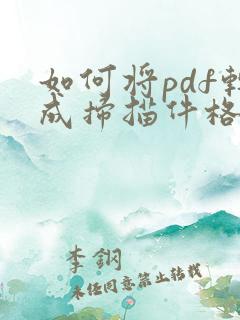 如何将pdf轉
成掃描件格
李鋼
未经同意禁止转载